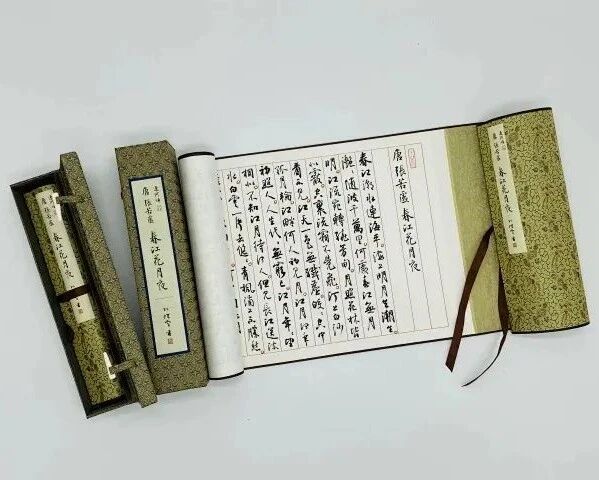 唐張若虛春江花月夜
唐張若虛春江花月夜
春江潮水連海平海上明月共潮生
灧灧隨波千萬里何處春江無月
明江流宛轉繞芳甸月照花林皆
似霰空裏流霜不覺飛汀上白沙
看不見江天一色無纖塵皎皎空中
孤月輪江畔何人初見月江月何年
初照人人生代代無窮已江月年年望
相似不知江月待何人但見長江送流
水白雲一片去悠悠青楓浦上不勝愁
唐張若虛春江花月夜
唐張若虛春江花月夜